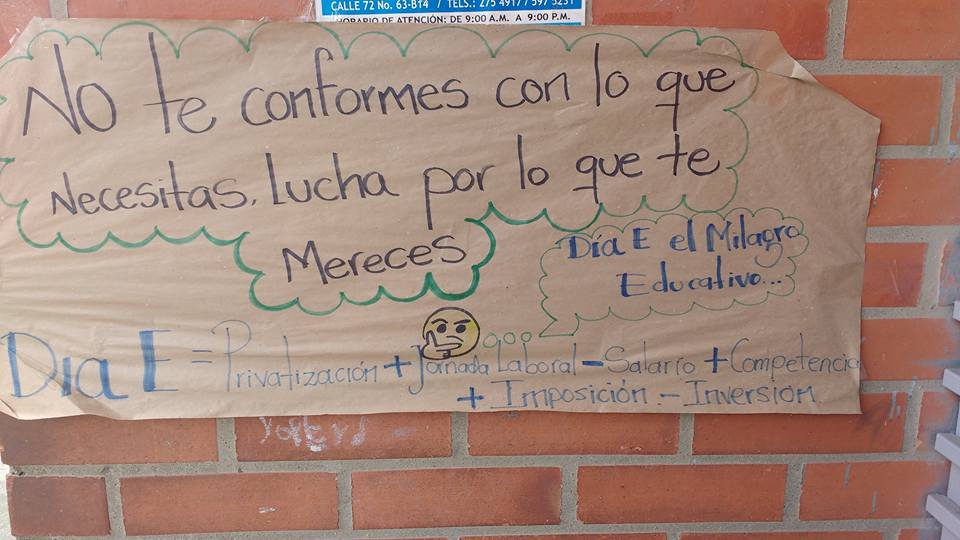 CALLE 72 No. 63-B14 / TELS.: 275 4917 / 597 5251
HORARIO DE ATENCIÓN: DE 9:00 A.M. A 9:00 P.M.
No te conformes con lo que
Necesitas. lucha por lo que te
Mereces
Día E el Milagro
Educativo...
Dia E = Privatización + Jornada Laboral - Salario + Competencia
+ Imposición. - Inversión